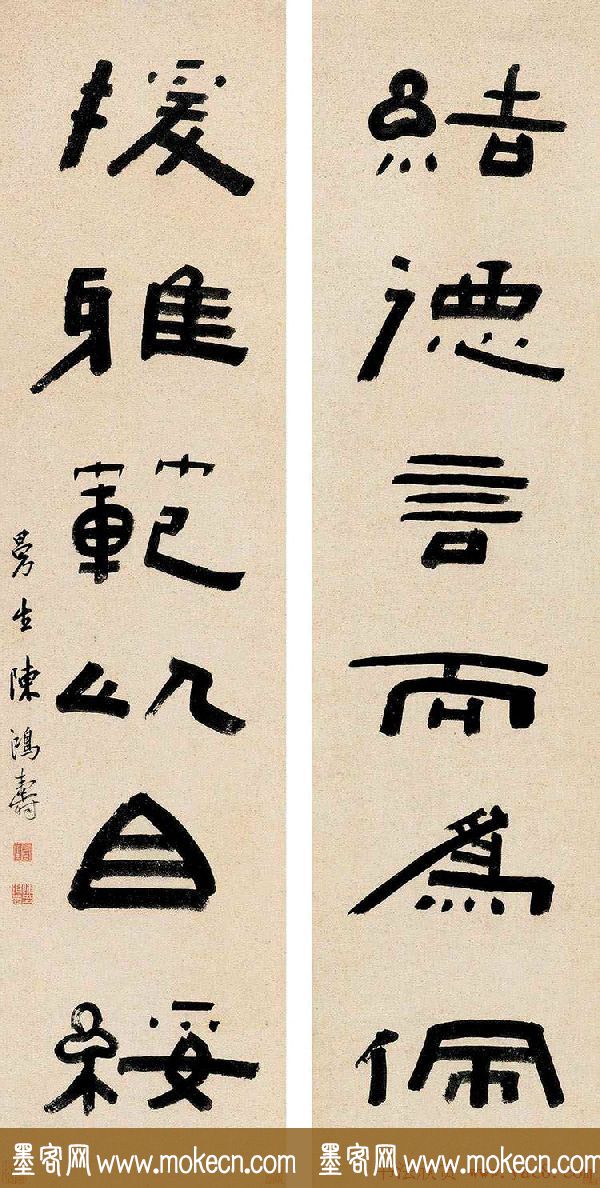 結德言而爲佩
援雅範以自綏
曼生陳鴻壽
墨客网 www.mokecn.com
墨客网 www.mokecn.com